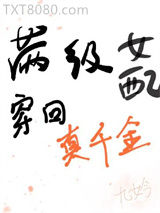 TXT8080.com
满级女配
穿回真千金